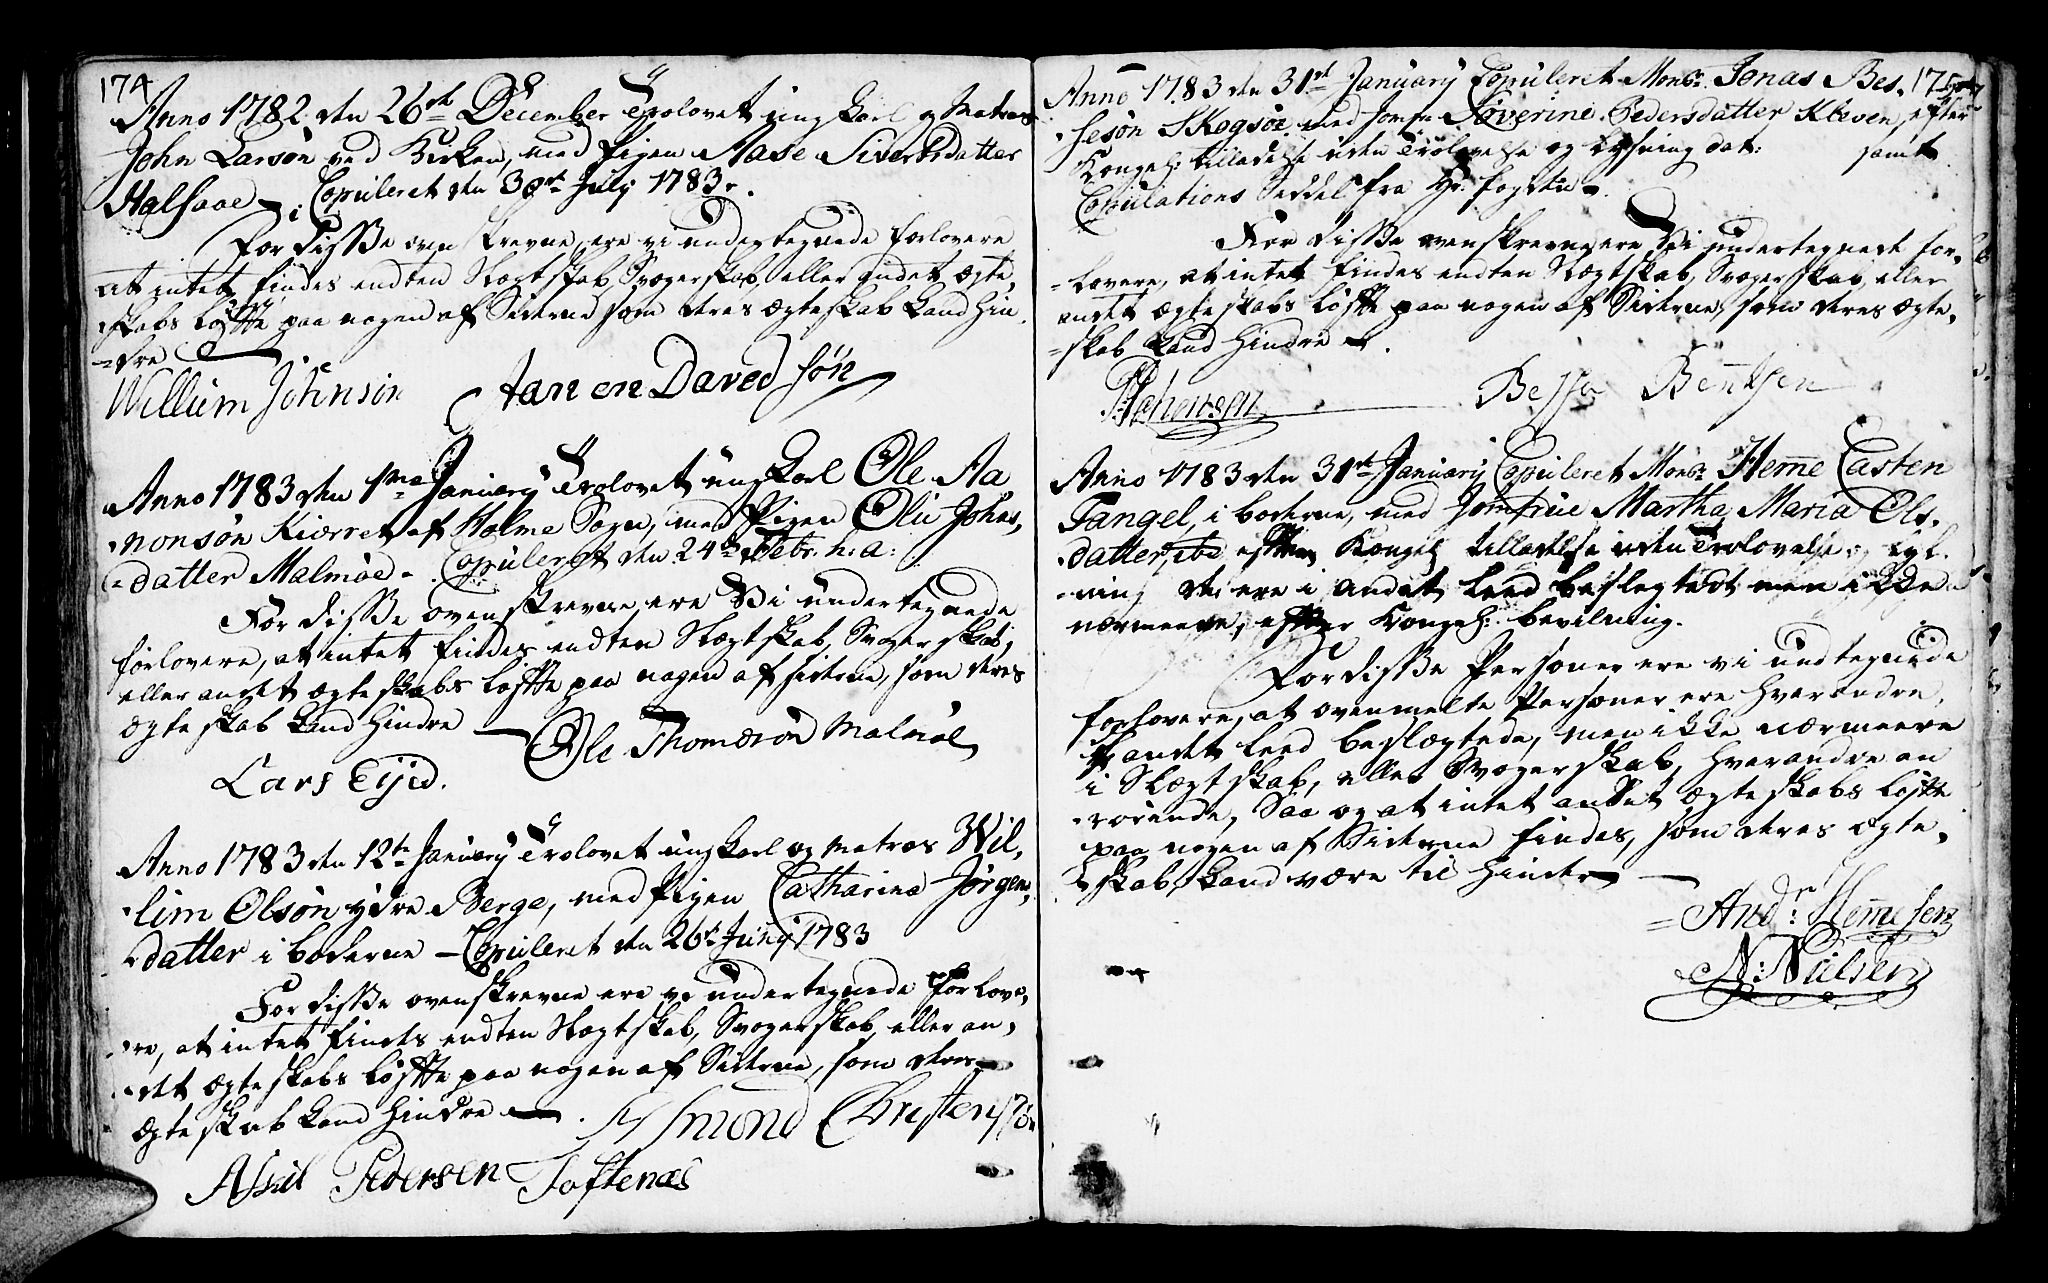 174
Anno 1782 den 26de December Trolovet ung Karl og Matros
John Larsøn ved Kirken, med Pigen Aase Sivertsdatter
Halsaae - Copuleret den 30te Julij 1783.
For disse oven skrevne, ere vi undertegnede forlovere
at intet findes endten Slægtskab, Svogerskab, eller andet ægte,
skabs løfte paa nogen af Siderne, som deres ægteskab kand hin
-dre
Willum Johnsøn Aanen Daved søn
Anno 1783 den 1ma January Trolovet ung Karl Ole Aa
nonsøn Kiørret af Holme Sogn, med Pigen Oliv Johns,
-datter Malmøe - Copuleret den 24de Febr: h: a:
For disse ovenskrevne, ere Vi undertegnede
forlovere, at intet findes endten Slægtskab, Svogerskab,
eller andet ægteskabs løfte paa nogen af siderne, som deres
ægteskab kand hindre
Ole Thomesøn Malmøe
Lars Eijd.
Anno 1783 den 12te January Trolovet ung Karl og Matros Wil,
lum Olsøn ydre Berge, med Pigen Catharina Jørgens,
datter i boderne - Copuleret den 26de Junij 1783
For disse ovenskrevne ere vi undertegnede Forlove,
re, at intet findes endten Slægtskab, Svogerskab, eller an,
det ægteskabs løfte paa nogen af Siderne, som deres
ægteskab kand hindre - Asmond Christensøn
Aschil Pedersen Toftenæs
175
Anno 1783 den 31te January Copuleret Monsr. Jonas Bes,
sesøn Skogsøe, med Jomfr. Søverine Pedersdatter Kleven, efter
Kongel: tilladelse uden Trolovelse og lysning dat: samt
Copulations Seddel fra Hr. fogden.
For disse ovenskrevne, ere Vi undertegnede for,
-lovere, at intet findes endten Slægtskab, Svogerskab, eller
andet ægteskabs løfte paa nogen af Siderne, som deres ægte,
-skab kand hindre.
Besse Bentsen
Anno 1783 den 31te January Copuleret Monsr. Heme Casten
Tangel, i boderne, med Jomfrue Martha Maria Ols,
datter, ibd efter Kongel: tilladelse uden Trolovelse og lys,
ning de ere i andet leed beslegtedt men ikke
nærmeere, efter Kongel: bevilning.
For disse Personer ere vi undtegnede
forlovere, at ovenmelte Personer ere hverandre
i andet leed beslægtede, men ikke nærmeere
i Slægtskab, eller Svogerskab, hverandre an
rørende, Saa og at intet andet ægteskabs løfte
paa nogen af Siderne findes, som deres ægte,
skab kand være til hinder
Andr: Hemesen
N: Nielsen